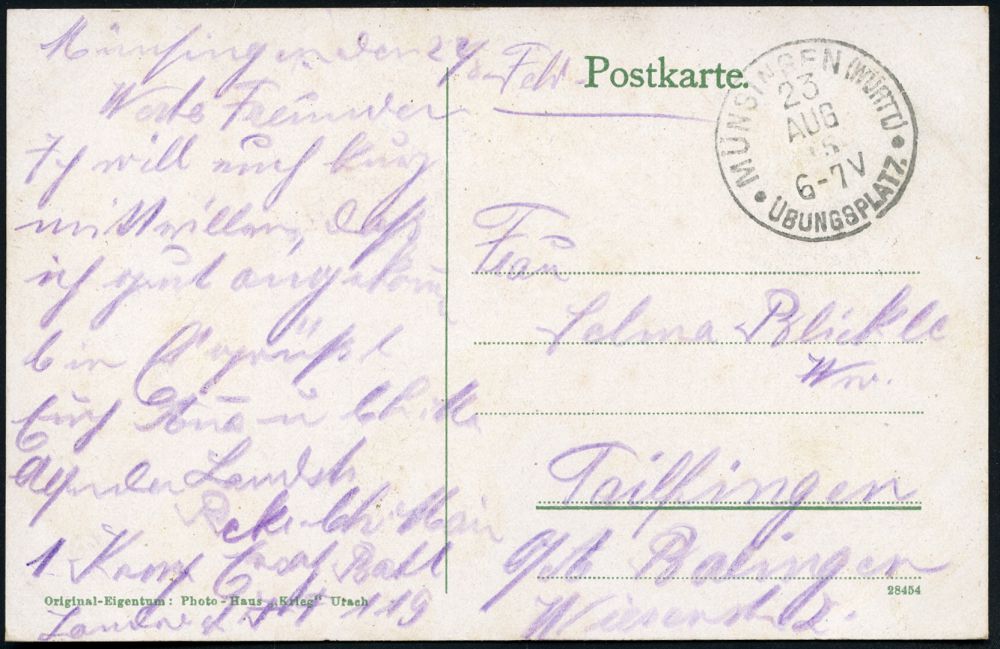 Münsingen den 22/8
Werte Freunde
Ich will euch kurz
mitteillen, daß
ich gut angekom
bin Es grüßt
Euch
Absender Landsh
1 Komp Ersatz Batl
Landw 119
Original-Eigentum: Photo-Haus „Krieg" Urach
Feld-
Postkarte.
MÜNSINGEN (WÜRTT.)
23
AUG
15
6-7V
ÜBUNGSPLATZ.
Frau
Selma Blickle
Ww.
Tailfingen
O/A Balingen
28454